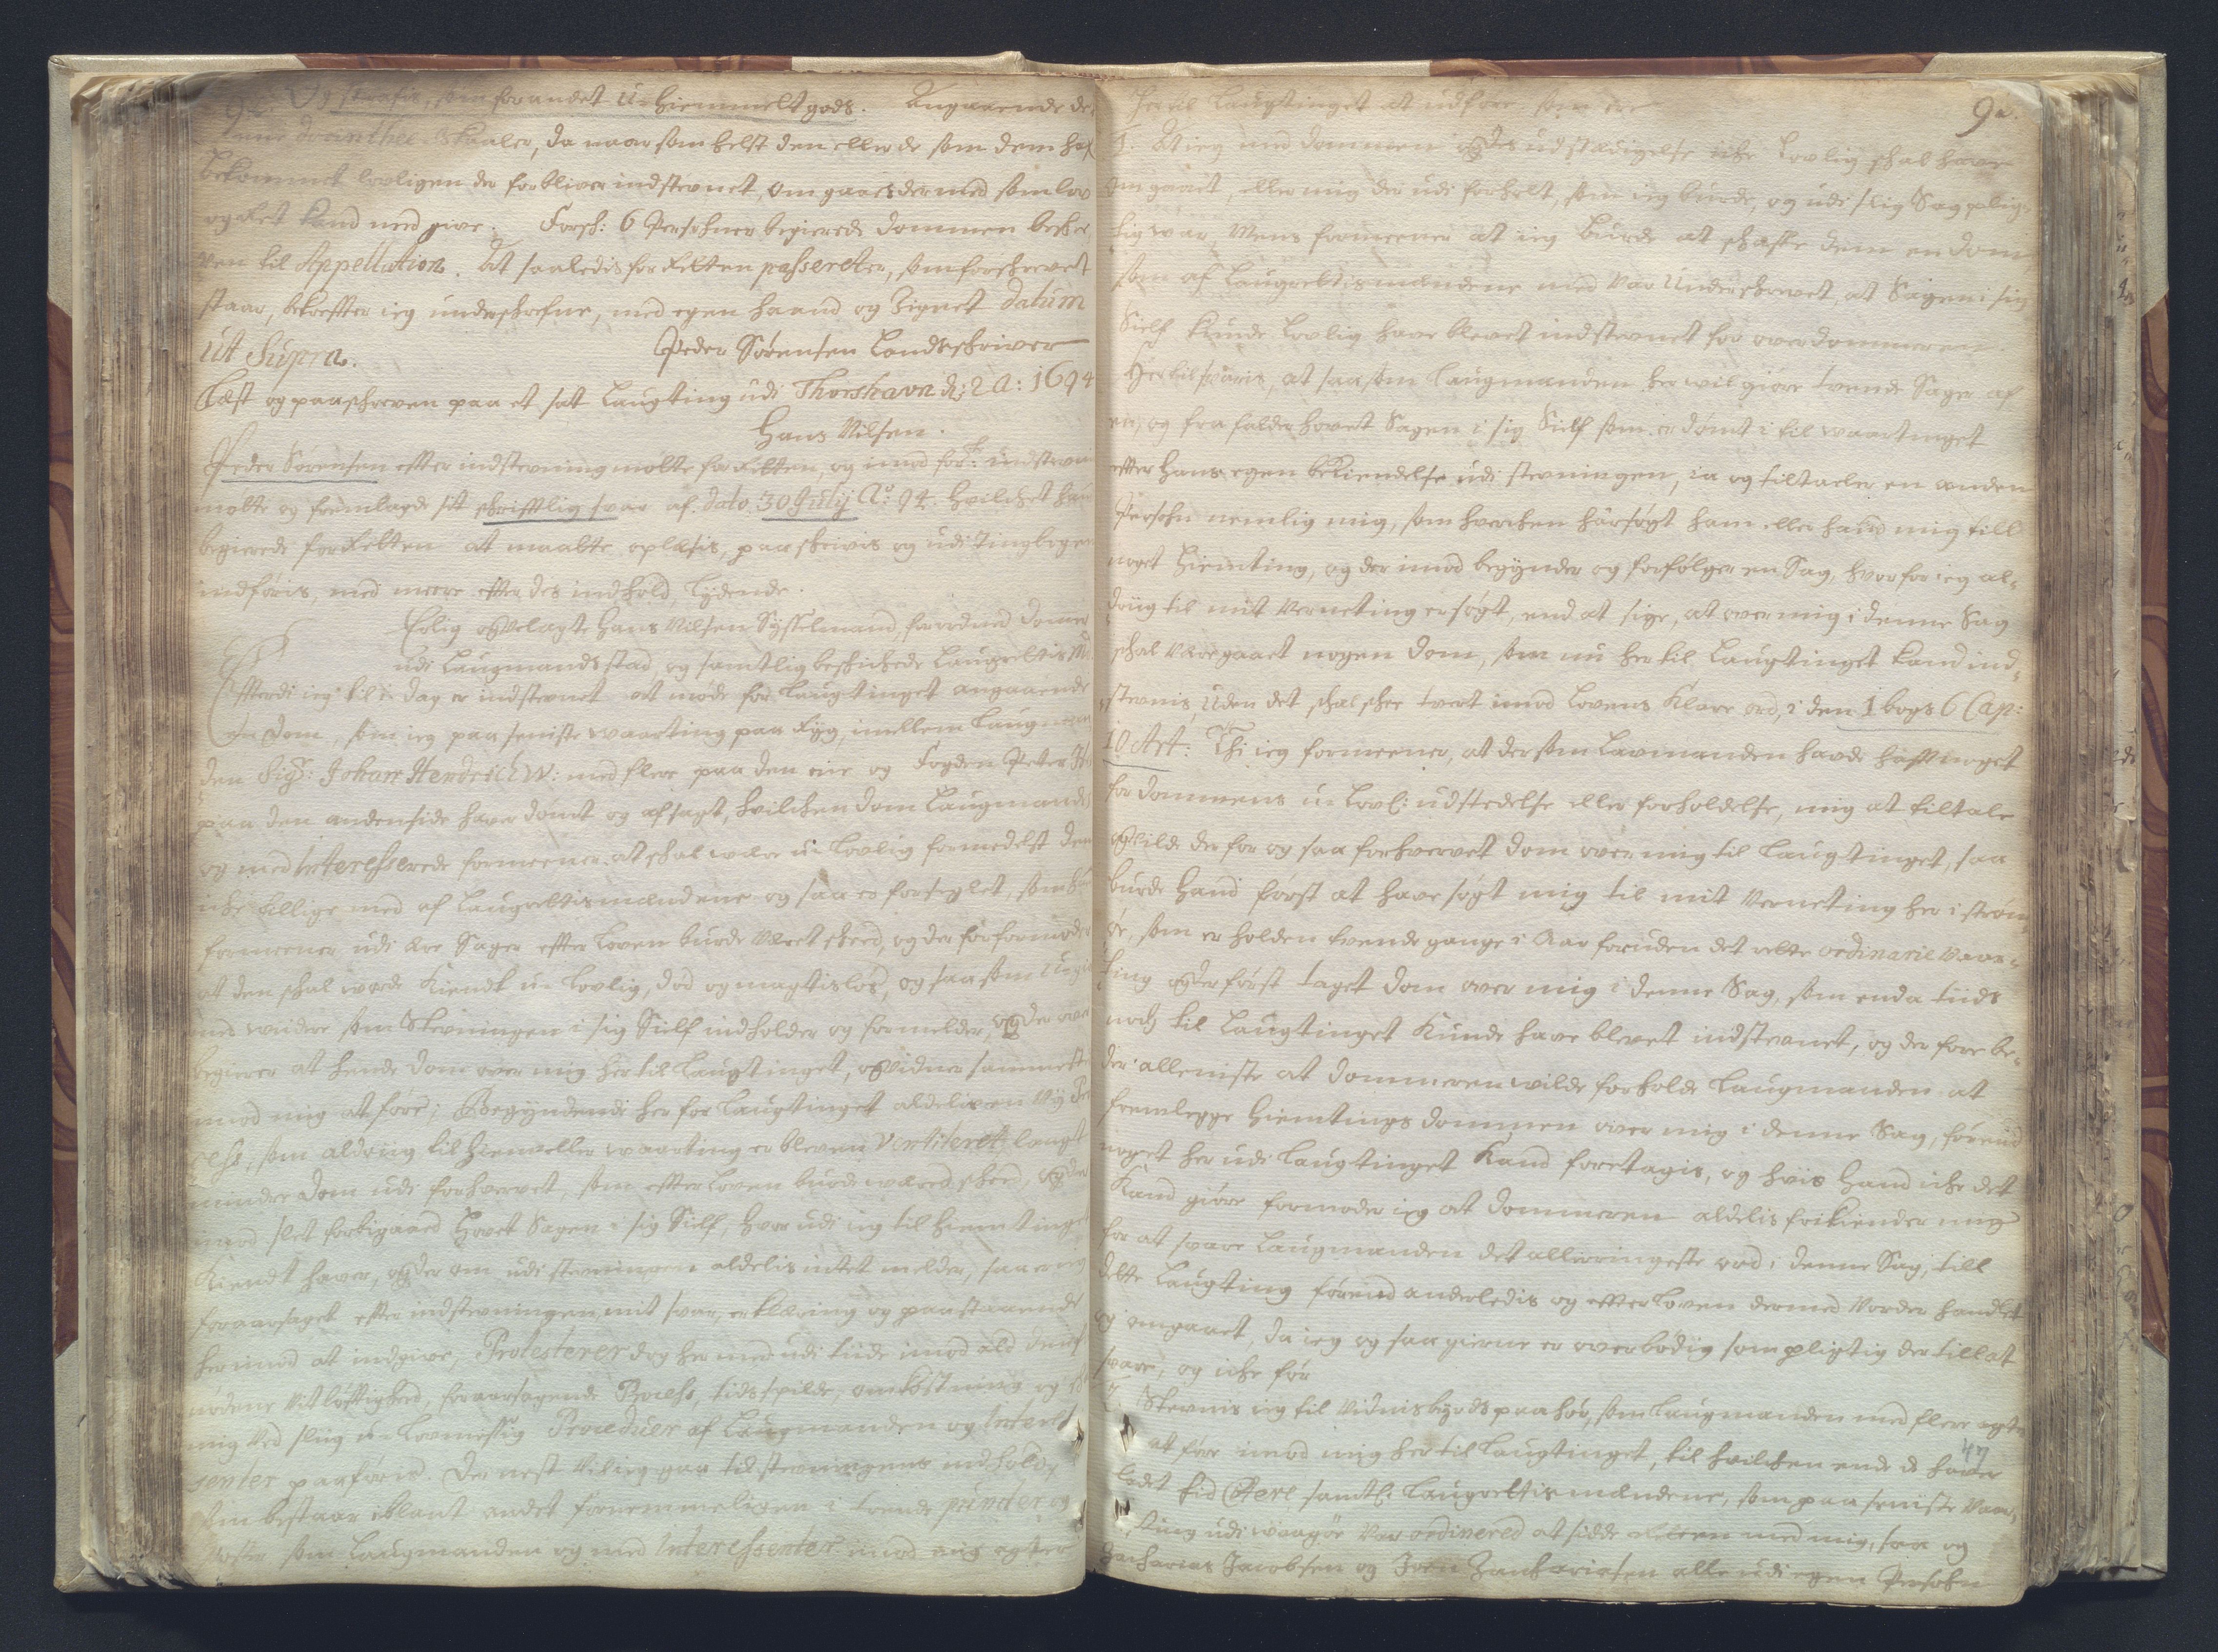 Og straffis, som for andet u-hiemmelt gods. Angaaende de
tvende doanthee Skaaler, da naar som helst den eller de som dem haf
bekommet lovligen der for bliver indstevnet, om gaaes der med som lov
og Ret kand med give. Forsch: 6 Persohner begierede dommen beskre
ven til Appellation. At saaledis for Retten passeret er, som forskrevet
staar, bekreffter ieg underskrefne, med egen haand og Zignet datum
ut Supra. Peder Sørensen Landtschriver
Læst og paaschreven paa et sat Laugting udi Thorshavn d: 2 A: 1694
Hans Nilsen.
Peder Sørensen effter indstevning møtte for Retten, og imod for: indstevn
møtte og fremlagde sit schrifftlig svar af dato 30 July Aº: 94. hvilchet hand
begierede for Retten at maatte oplæsis, paaskrivis og udi Tingbogen
indføris, med meere effter des indhold, lydende.
Erlig og Velagte Hans Nilsen Sysselmand, forordned Domer
udi Laugmands stad, og samtlig beskichede Laugrettis M
Effterdi ieg til i dag er indstevnet at møde for Laugtinget angaaende
en Dom, som ieg paa seniste waarting paa Lyg, imellem Laugman
den Sigr: Johan Hendrich W: med flere paa den eene og Fogden Peter
paa den anden side haver dømt og afsagt, hvilchen dom Laugmanden
og med Interesserede formeener at schal være u-Lovlig formedelst den
iche tillige med af Laugrettismændene og saa er forseglet, som
formeener udi ære Sager effter Loven burde Været skeed, og der for formoder
at den schal worde Kiendt u-Lovlig, død og magtisløs, og saa som
med widere som Stevningen i sig Sielf indholder og formelder, og der over
begierer at hende dom over mig her til Laugtinget, og Vidner sammest
imod mig at føre; Begyndende her for Laugtinget aldelis en Ny Pro
cess, som aldrig til hiem eller waarting er bleven Ventileret, langt
mindre Dom udi forhvervet, som effter Loven burde wæred skeed, og der
imod slet forbigaaed Hovet Sagen i sig Sielf, hvor udi ieg til hiemtinget
Kiendt haver, og der om udi stevningen aldelis intet melder, saa er ieg
foraarsaget effter indstevningen mit svar, erklæring og paastaaende
her imod at indgive, Protesterer dog her med udi tiide imod ald dend
unødene Vitløfftighed, foraarsagende Process, tidsspilde, omkostning og
mig Ved sliig u-Lovmessig Proceduer af Laugmanden og Interes
senter paaføris. Der nest Vil ieg gaa til stevningens indhold,
som bestaar iblant andet fornemmeligen i tvende puncter og
Poster som Laugmanden og med Interessenter imod mig agter
her til Laugtinget at udføre som ere 92.
1. At ieg med dommen og des udstædigelse iche Lovlig schal have
omgaaet, eller mig der udi forholt, som ieg burde, og udi slig Sag plig-
tig war, Mens formeener at ieg burde at schaffe dem en dom
som af Laugrettismændene med Var Underschrevet, at Sagen i sig
Sielf kunde Lovlig have blevet indstevnet for overdommeren.
Hertil svaris, at saasom Laugmanden her wil giøre tvende Sager af
en, og fra falder hovet Sagen i sig Sielf som er dømt i til waartinget
effter hans egen bekiendelse udi stevningen, ia og tiltaeler en anden
Persohn nemlig mig, som hverchen haver søgt ham eller hand mig till
noget hiemting, og der imod begynder og forfølger en Sag, hvor for ieg al-
drig til mit Verneting er søgt, end at sige, at over mig i denne Sag
schal være gaaet nogen dom, som nu her til Laugtinget kand ind-
stevnis, uden det schal schee tvert imod Lovens Klare ord, i den 1 bogs 6 Cap:
10 Art: Thi ieg formeener, at dersom Laumanden havde hafft noget
for dommens u-Lovl: udstedelse eller forholdelse, mig at tiltale
og Vilde der for og saa forhvervet dom over mig til Laugtinget, saa
burde hand først at have søgt mig til mit Verneting her i Strøm-
øe, som er holden tvende gange i Aar foruden det rette ordinarie Waar-
ting og der først taget dom over mig i denne Sag, som enda tiids
noch til Laugtinget Kunde have blevet indstevnet, og der fore be-
der alleniste at Dommeren wilde forholde Laugmanden at
fremlegge hiemtings dommen over mig i denne Sag, førend
noget her udi Laugtinget Kand foretagis, og hvis hand iche det
Kand giøre formoder ieg at Dommeren aldelis frikiender mig
for at svare Laugmanden det allerringeste ord i denne Sag, till
dette Laugting førend anderledis og effter Loven dermed Vorder handlet
og omgaaet, da ieg og saa gierne er overbødig som pligtig der till at
svare, og iche før
2. Stevnis ieg til Vidnisbyrds paahør, som Laugmanden med flere agter
at føre imod mig her til Laugtinget, til hvilchen ende de haver
ladet kid Petre samtl: Laugrettismændene, som paa seniste Vaar-
ting udi waagøe Var ordinered at sidde Retten med mig, saa og
Zacharias Jacobsen og Joen Zachariasen alle udi egen Persohn
47